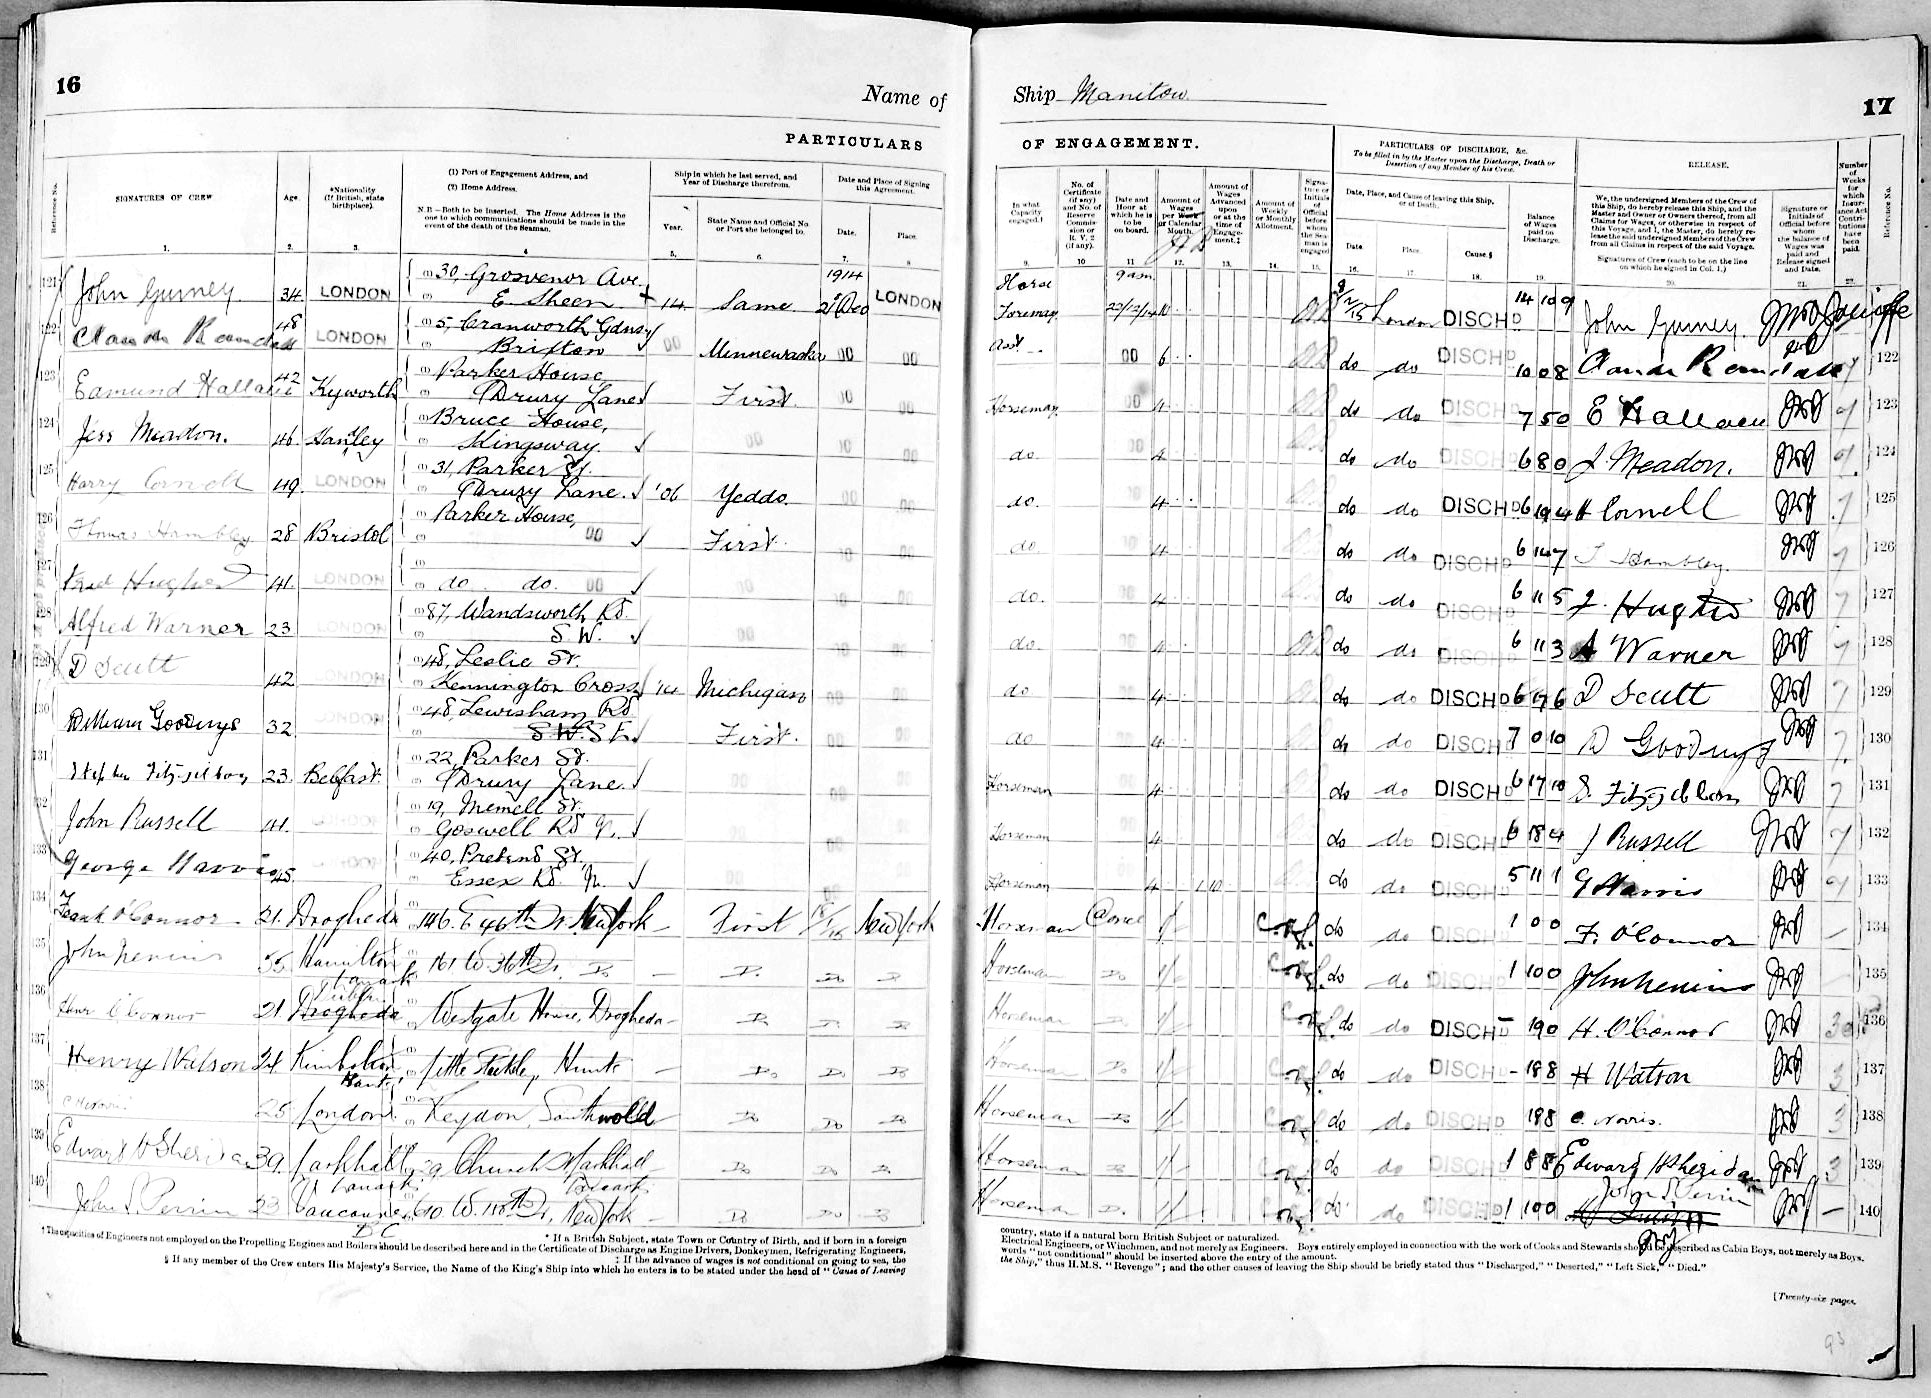 16
Name of
PARTICULARS
Reference No.
SIGNATURES OF CREW
Age.
*Nationality (If British, state birthplace).
(1) Port of Engagement Address, and
(2) Home Address.
N.B.—Both to be inserted. The Home Address is the one to which communications should be made in the event of the death of the Seaman.
Ship in which he last served, and Year of Discharge therefrom.
Year.
State Name and Official No. or Port she belonged to.
Date and Place of Signing this Agreement.
Date.
Place.
1. 2. 3. 4 5. 6. 7. 8
121 John Gurney 34 LONDON (1) 30, Grosvenor Ave. 1914
(2) E. Sheen 14 Same. 21 Dec LONDON
122 48 LONDON (1) 5, Cranworth Gdns
(2) Brixton 00 Minnewaska 00 00
123 Edmund 42 Kyworth (1) Parker House,
(2) Drury Lane First. 00 00
124 Jess Meadon. 46 Hanley (1) Bruce House,
(2) Kingsway. 00 00 00
125 Harry Cornell 49. LONDON (1) 31, Parker St.
(2) Drury Lane. '06 Yeddo. 00 00
126 Thomas Hambley 28 Bristol (1) Parker House,
(2) 00 First. 00 00
127 Fred Hughes 41. LONDON (1)
(2) do do. 00 00 00
128 Alfred Warner 23 LONDON (1) 87, Wandsworth Rd.
(2) S.W. 00 00 00
129 D Scutt 42 LONDON (1) 48, Leslie St.
(2) Kennington Cross '14 Michigan 00 00
130 William 32. LONDON (1) 48, Lewisham Rd
(2) S.W. S.E. First. 00 00
131 23. Belfast. (1) 22, Parker St.
(2) Drury Lane. 00 00 00
132 John Russell 41. LONDON (1) 19, Memell St.
(2) Goswell Rd 00 00 00
133 George Harris 45. LONDON (1) 40, St.,
(2) Essex Rd. N. 00 00
134 Frank O'Connor 21. Drogheda 146. E 46th St. New York First New York
135 John Nevins 55 Hamilton 161 W. 36th St. Do Do Do Do
Lanark
136 O'Connor 21 Dublin Drogheda Westgate House, Drogheda Do Do Do
137 Henry Watson 24 Kimbolton Little Hunts Do Do Do
Hunts
138 25 London Southwold Do Do Do
139 Edward H Sheridan 39 Larkhall 29 Church St Larkhall Do Do Do
Lanark Lanark
140 John S. Perrin 23 Vancouver 610 W. 118th St, New York Do Do Do
B C
† The capacities of Engineers not employed on the Propelling Engines and Boilers should be described here and in the Certificate of Discharge as Engine Drivers, Donkeymen, Refrigerating Engineers,
* If a British Subject, state Town or Country of Birth, and if born in a foreign
‡ If the advance of wages is not conditional on going to sea, the
§ If any member of the Crew enters His Majesty's Service, the Name of the King's Ship into which he enters is to be stated under the head of "Cause of Leaving
Ship Manitou
17
OF ENGAGEMENT.
In what Capacity engaged.†
No. of Certificate (if any) and No. of Reserve Commission or R. V. 2 (if any).
Date and Hour at which he is to be on board.
Amount of Wages per Week or Calendar Month.
Amount of Wages Advanced upon or at the time of Engagement.‡
Amount of Weekly or Monthly Allotment.
Signature or Initials of Official before whom the Seaman is engaged
PARTICULARS OF DISCHARGE, &c.
To be filled in by the Master upon the Discharge, Death or Desertion of any Member of his Crew.
Date, Place, and Cause of leaving this Ship, or of Death.
Date
Place.
Cause.§
Balance of Wages paid on Discharge.
RELEASE.
We, the undersigned Members of the Crew of this Ship, do hereby release this Ship, and the Master and Owner or Owners thereof, from all Claims for Wages, or otherwise in respect of this Voyage, and I, the Master, do hereby release the said undersigned Members of the Crew from all Claims in respect of the said Voyage.
Signatures of Crew (each to be on the line on which he signed in Col. 1.)
Signature or Initials of Official before whom the balance of Wages was paid and Release signed and Date.
Number of Weeks for which Insurance Act Contributions have been paid.
Reference No.
9. 10 11 12. 13. 14. 15. 16. 17. 18. 19. 20. 21. 22.
Horse 9 am
Foreman 22/12/14 London DISCHD 14 10 9 John Gurney
Asst. 00 6 do do DISCHD 10 0 8 122
Horseman 00 4 do do DISCHD 7 5 0 123
do. 4 do do DISCHD 6 8 0 J. Meadon. 124
do. 4 do do DISCHD 6 19 4 H Cornell 7 125
do. 4 do do DISCHD 6 14 7 T Hambley 7 126
do. 4 do do DISCHD 6 11 5 F. Hughes 7 127
do. 4 do do DISCHD 6 11 3 A Warner 7 128
do 4 do do DISCHD 6 7 6 D Scutt 7 129
do 4 do do DISCHD 7 0 10 7 130
Horseman 4 do do DISCHD 6 17 10 7 131
Horseman 4 do do DISCHD 6 18 4 J Russell 7 132
Horseman 4 1 10 do do DISCHD 5 11 1 G Harris 133
Horseman @ once 1/ do do DISCHD 1 0 0 F. O'Connor 134
Horseman Do 1/ do do DISCHD 1 0 0 John Nevins 135
Horseman Do 1/ do do DISCHD 19 0 H. O'Connor 136
Horseman Do 1/ do do DISCHD 18 8 H Watson 3 137
Horseman Do 1/ do do DISCHD 18 8 C. Norris. 3 138
Horseman Do 1/ do do DISCHD 1 8 8 Edward H Sheridan 3 139
Horseman Do 1/ do do DISCHD 1 0 0 John S Perrin 140
country, state if a natural born British Subject or naturalized.
Electrical Engineers, or Winchmen, and not merely as Engineers. Boys entirely employed in connection with the work of Cooks and Stewards should be described as Cabin Boys, not merely as Boys.
words "not conditional" should be inserted above the entry of the amount.
the Ship," thus H.M.S. "Revenge"; and the other causes of leaving the Ship should be briefly stated thus "Discharged," "Deserted," "Left Sick," "Died."
[Twenty-six pages.
93